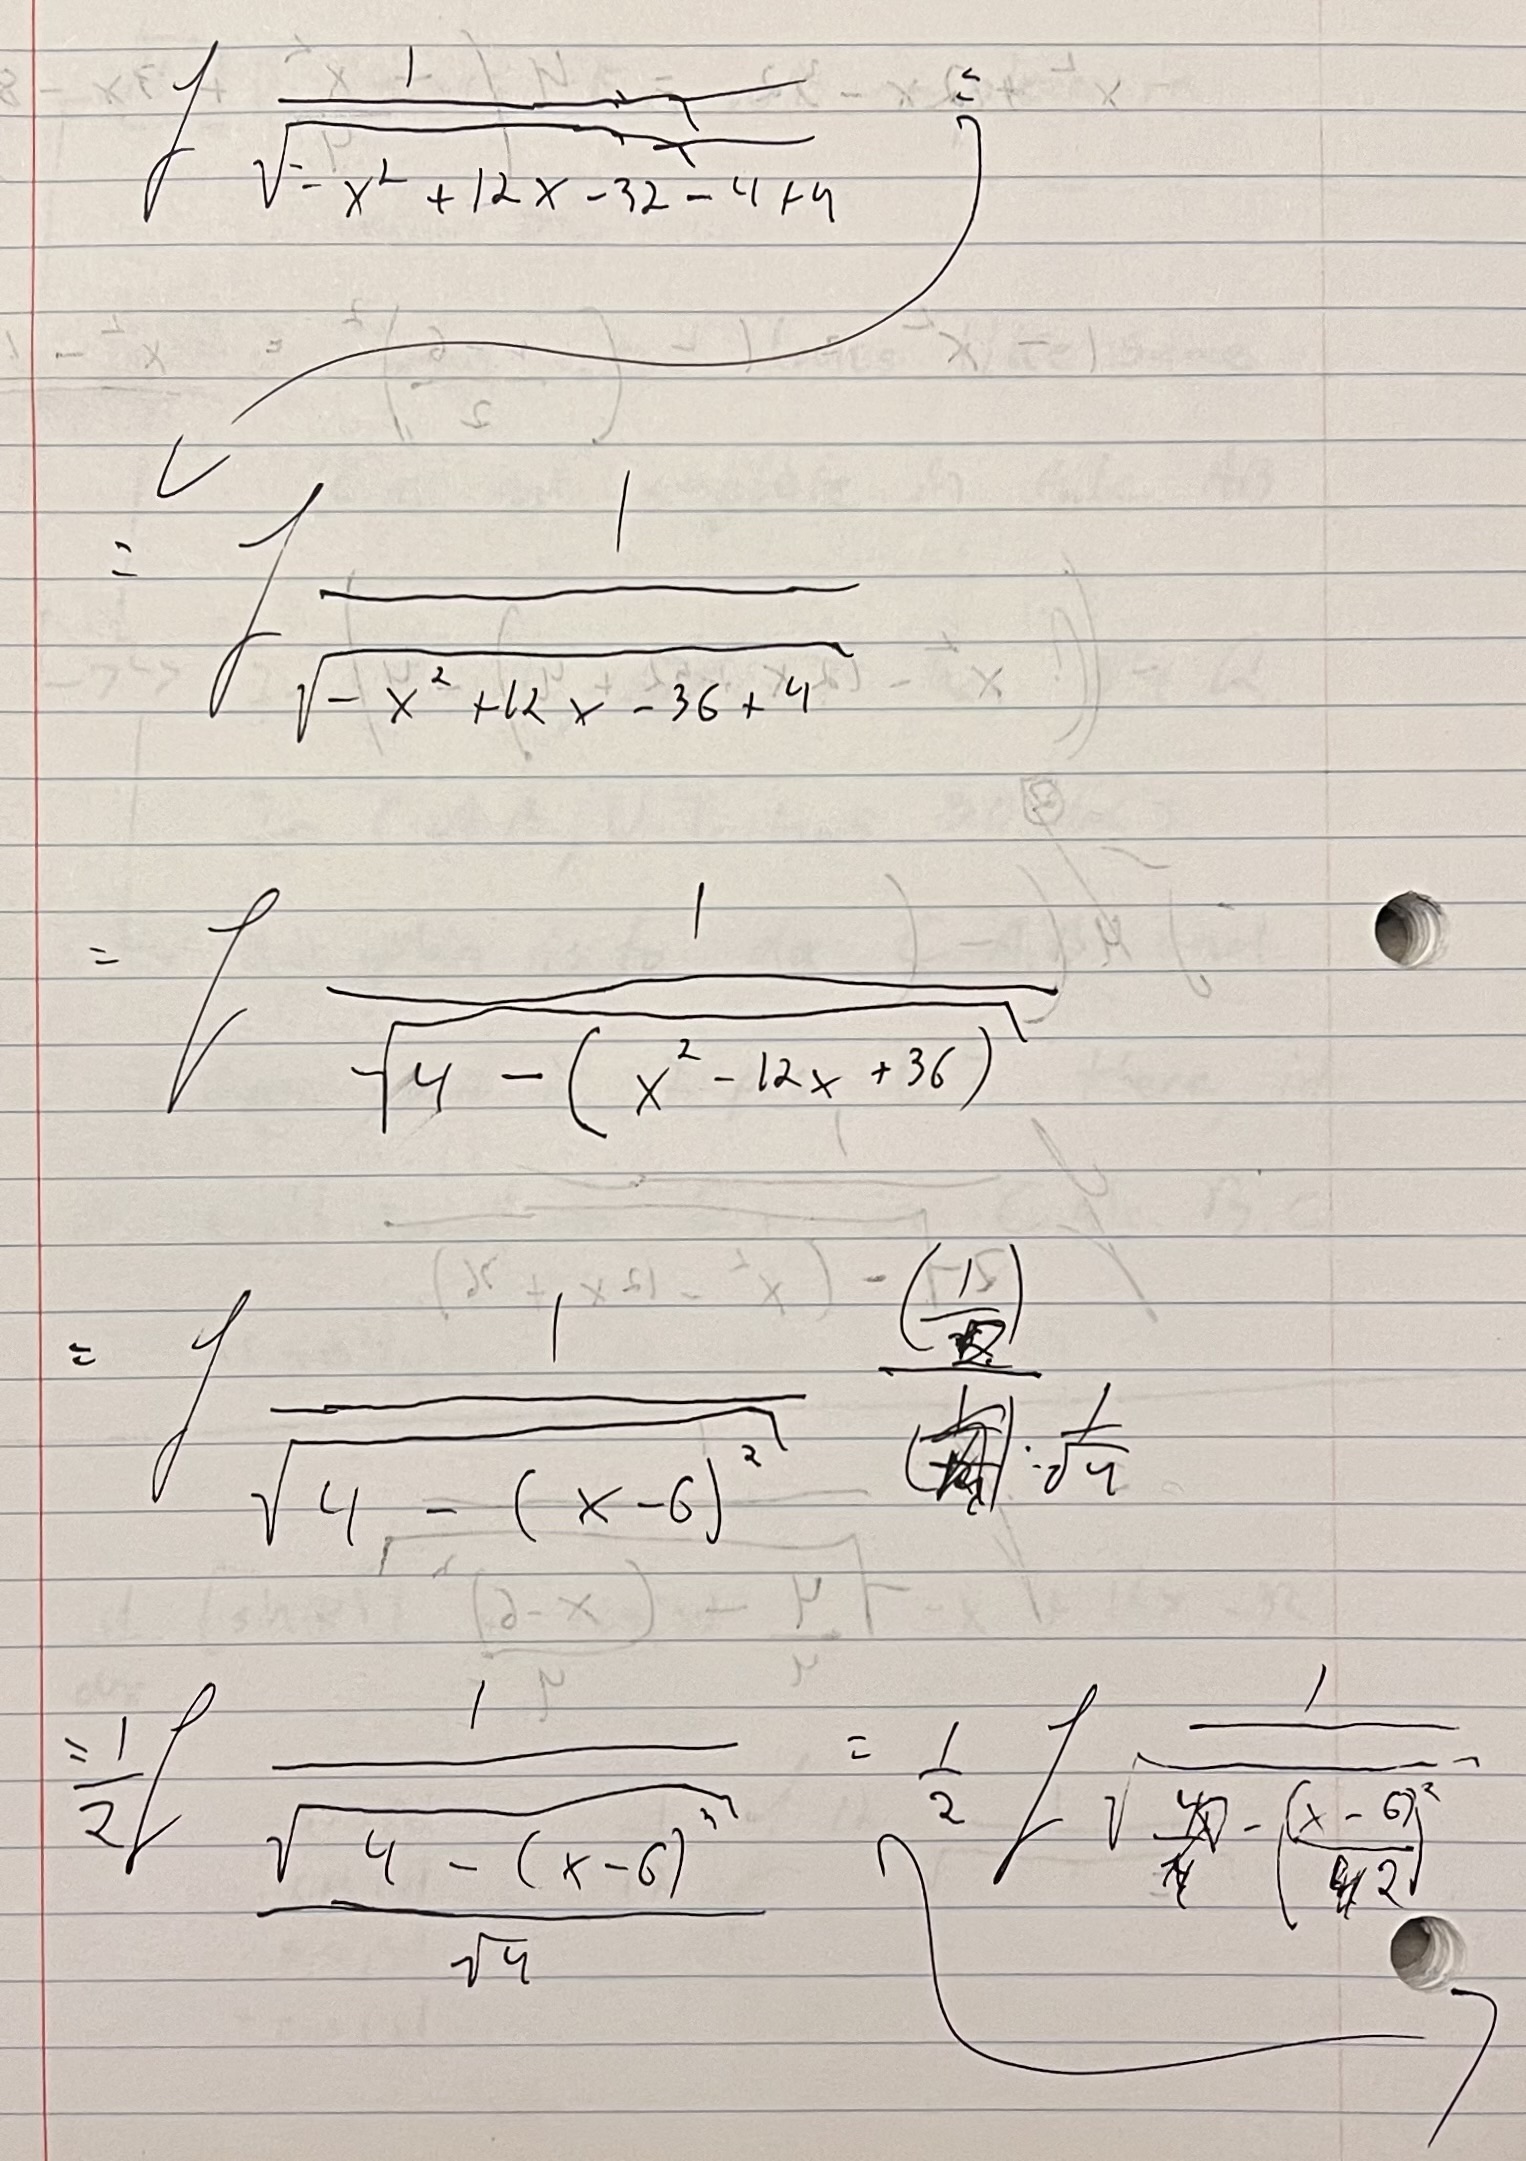 ∫ 1/√(-x² + 12x - 32 - 4 + 4) =
= ∫ 1/√(-x² + 12x - 36 + 4)
= ∫ 1/√(4 - (x² - 12x + 36))
= ∫ 1/√(4 - (x-6)²) (1/) / () : 1/√4
= 1/2 ∫ 1/(√(4 - (x-6)²)/√4) = 1/2 ∫ 1/√(4/4 - ((x-6)/2)²)